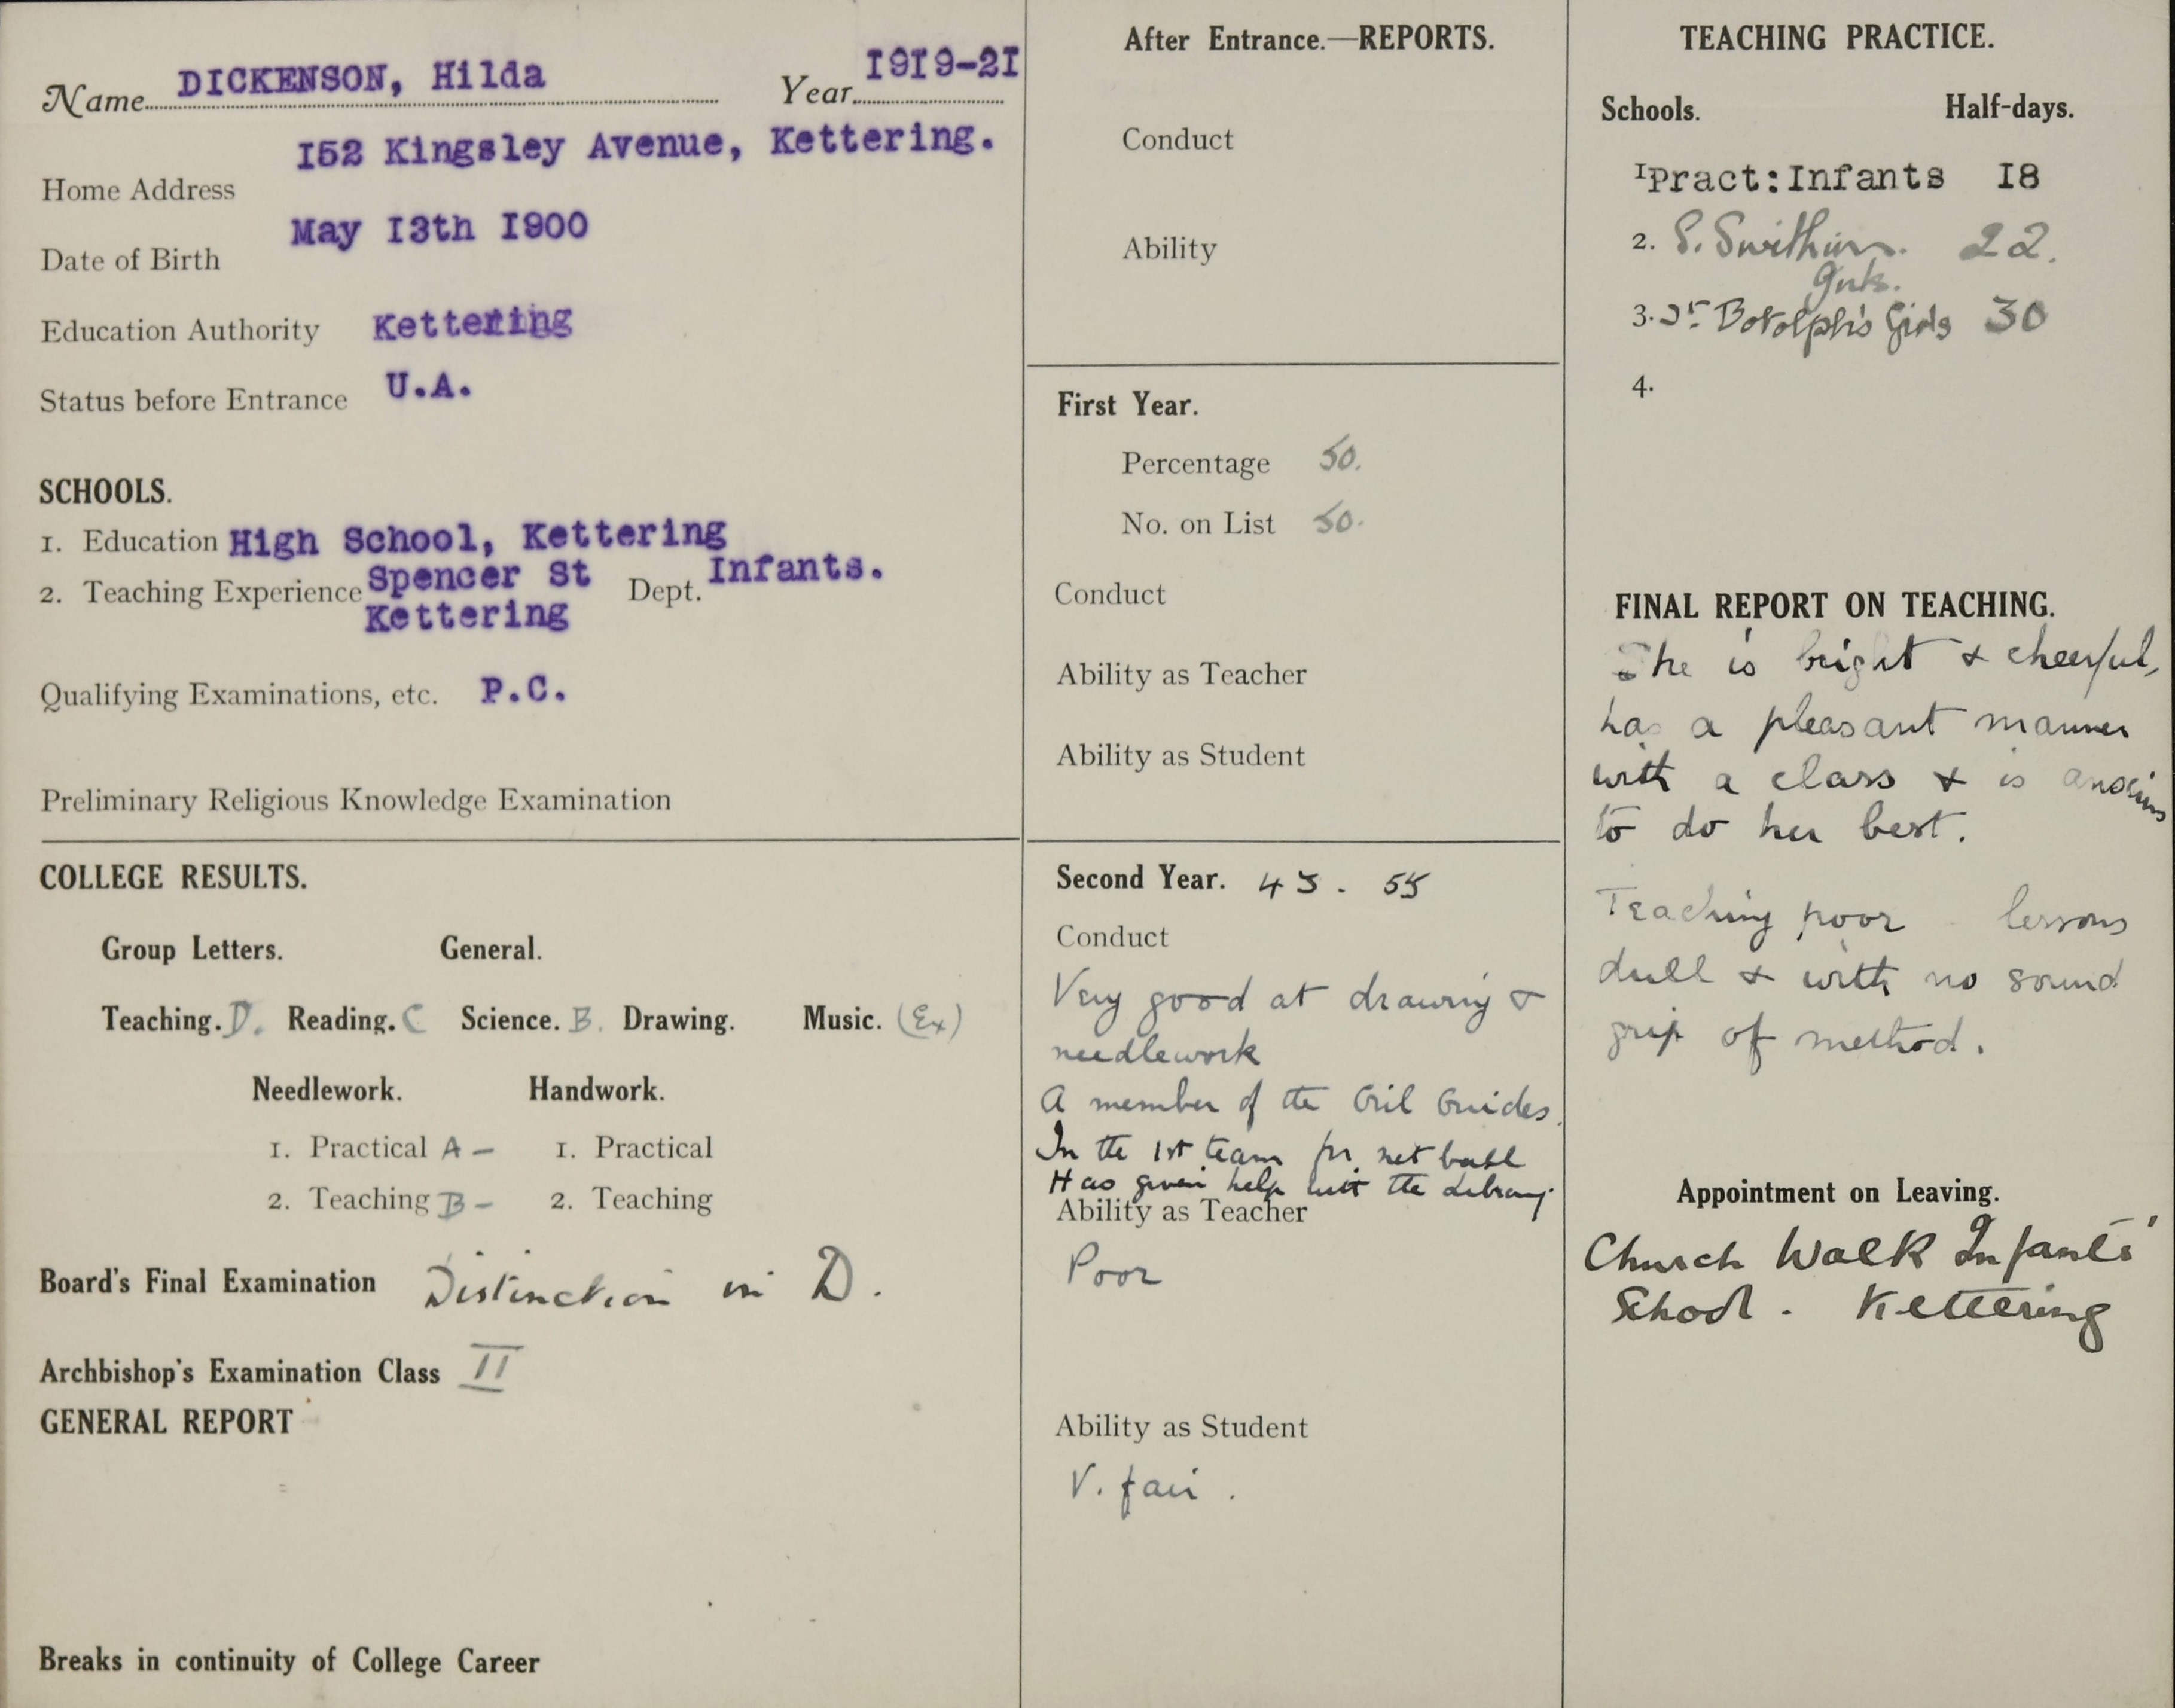 Name DICKENSON, Hilda Year 1919-21
152 Kingsley Avenue, Kettering.
Home Address
May 13th 1900
Date of Birth
Education Authority Kettering
Status before Entrance U.A.
SCHOOLS.
1. Education High School, Kettering
2. Teaching Experience Spencer St Dept. Infants.
Kettering
Qualifying Examinations, etc. P.C.
Preliminary Religious Knowledge Examination
COLLEGE RESULTS.
Group Letters. General.
Teaching. D. Reading. C Science. B. Drawing. Music. (Ex)
Needlework. Handwork.
1. Practical A - 1. Practical
2. Teaching B - 2. Teaching
Board's Final Examination Distinction in D.
Archbishop's Examination Class II
GENERAL REPORT
Breaks in continuity of College Career
After Entrance.—REPORTS.
Conduct
Ability
First Year.
Percentage 50.
No. on List 50.
Conduct
Ability as Teacher
Ability as Student
Second Year. 43. 55
Conduct
Very good at drawing &
needlework
A member of the Gril Guides.
In the 1st team for net ball
Has given help with the Library.
Ability as Teacher
Poor
Ability as Student
V. fair.
TEACHING PRACTICE.
Schools. Half-days.
1 Pract:Infants 18
2. S. Swithins. 22.
3. St Botolph's Girls 30
4.
FINAL REPORT ON TEACHING.
She is bright & cheerful,
has a pleasant manner
with a class & is anxious
to do her best.
Teaching poor - lessons
dull & with no sound
grip of method.
Appointment on Leaving.
Church Walk Infants'
School. Kettering